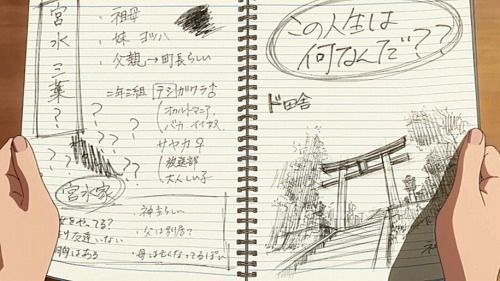 宮水 三葉?
・祖母
・妹 ヨツハ
・父親→町長らしい
二年三組
テシガワラ♂
オカルトマニア
バカ イイヤス
サヤカ♀
放送部
大人しい子
? ? ? ? ? ? ?
宮水家
胸はある
・神社らしい
・父は別居?
・母は亡くなってるぽい
この人生は
何なんだ??
ド田舎